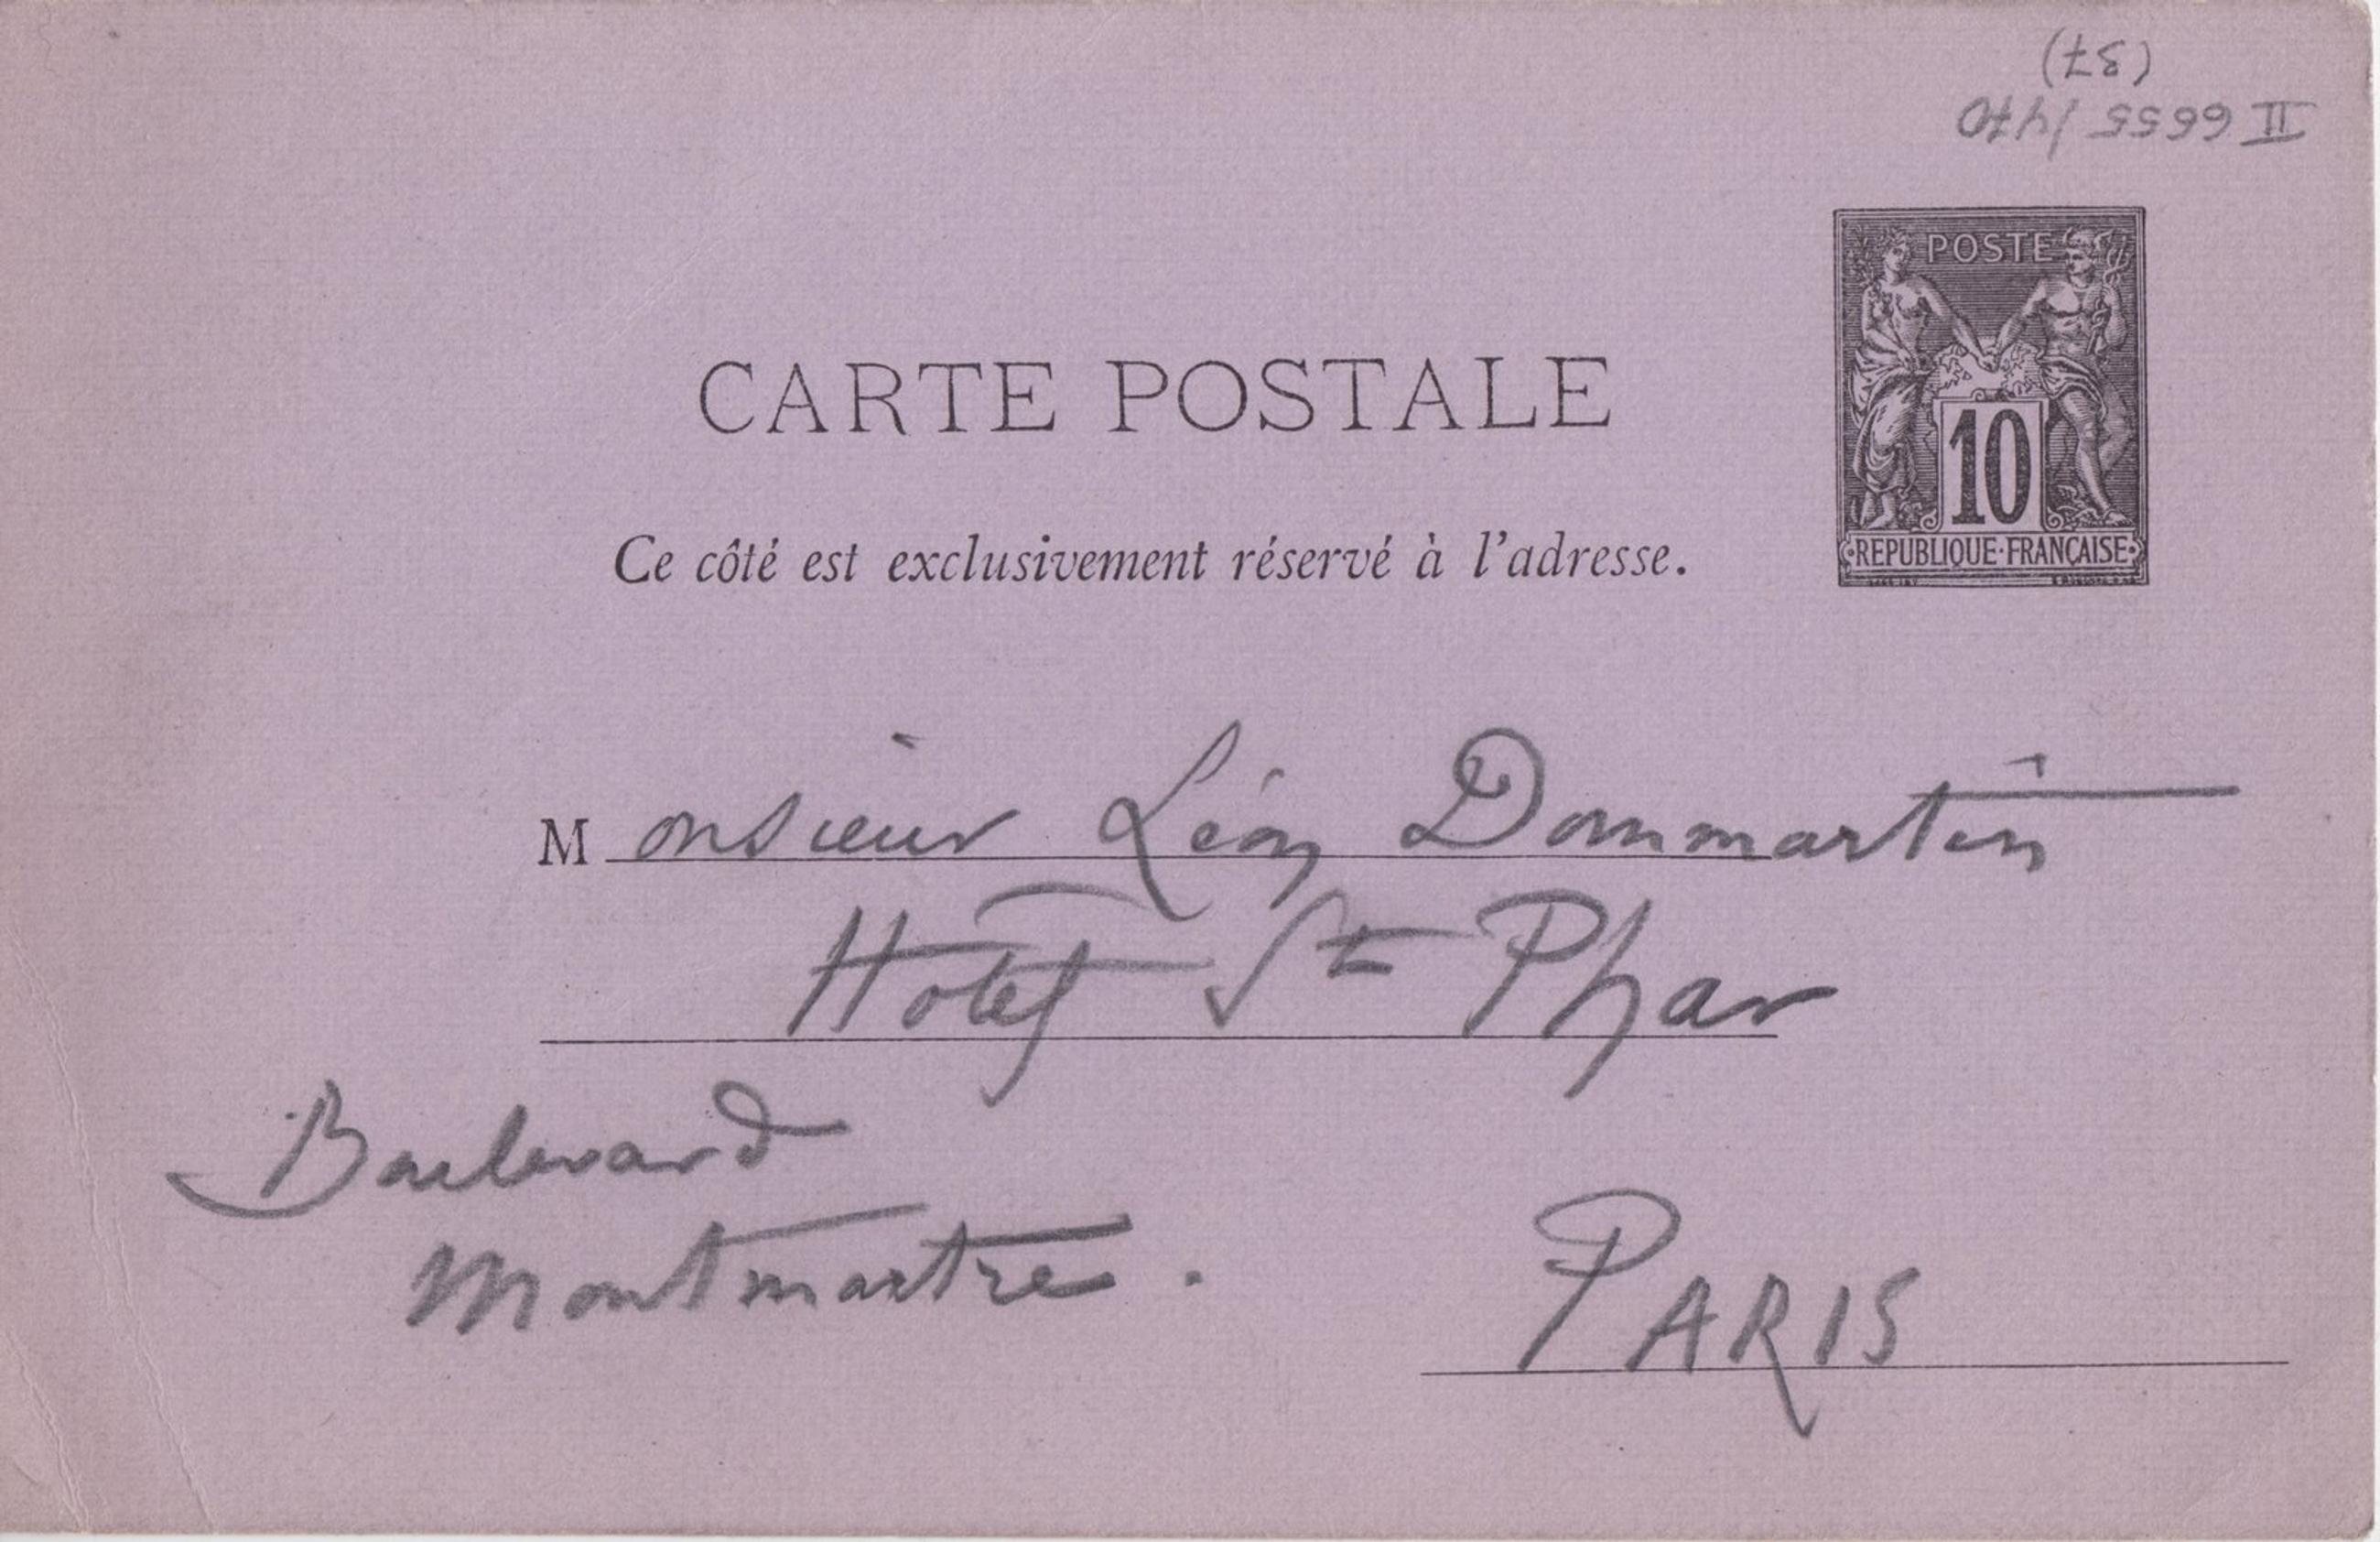 (37)
II 6655/470
POSTE
10
REPUBLIQUE·FRANÇAISE
CARTE POSTALE
Ce côté est exclusivement réservé à l'adresse.
Monsieur Léon Dommartin
Hotel St Phar
Boulevard
Montmartre.
PARIS